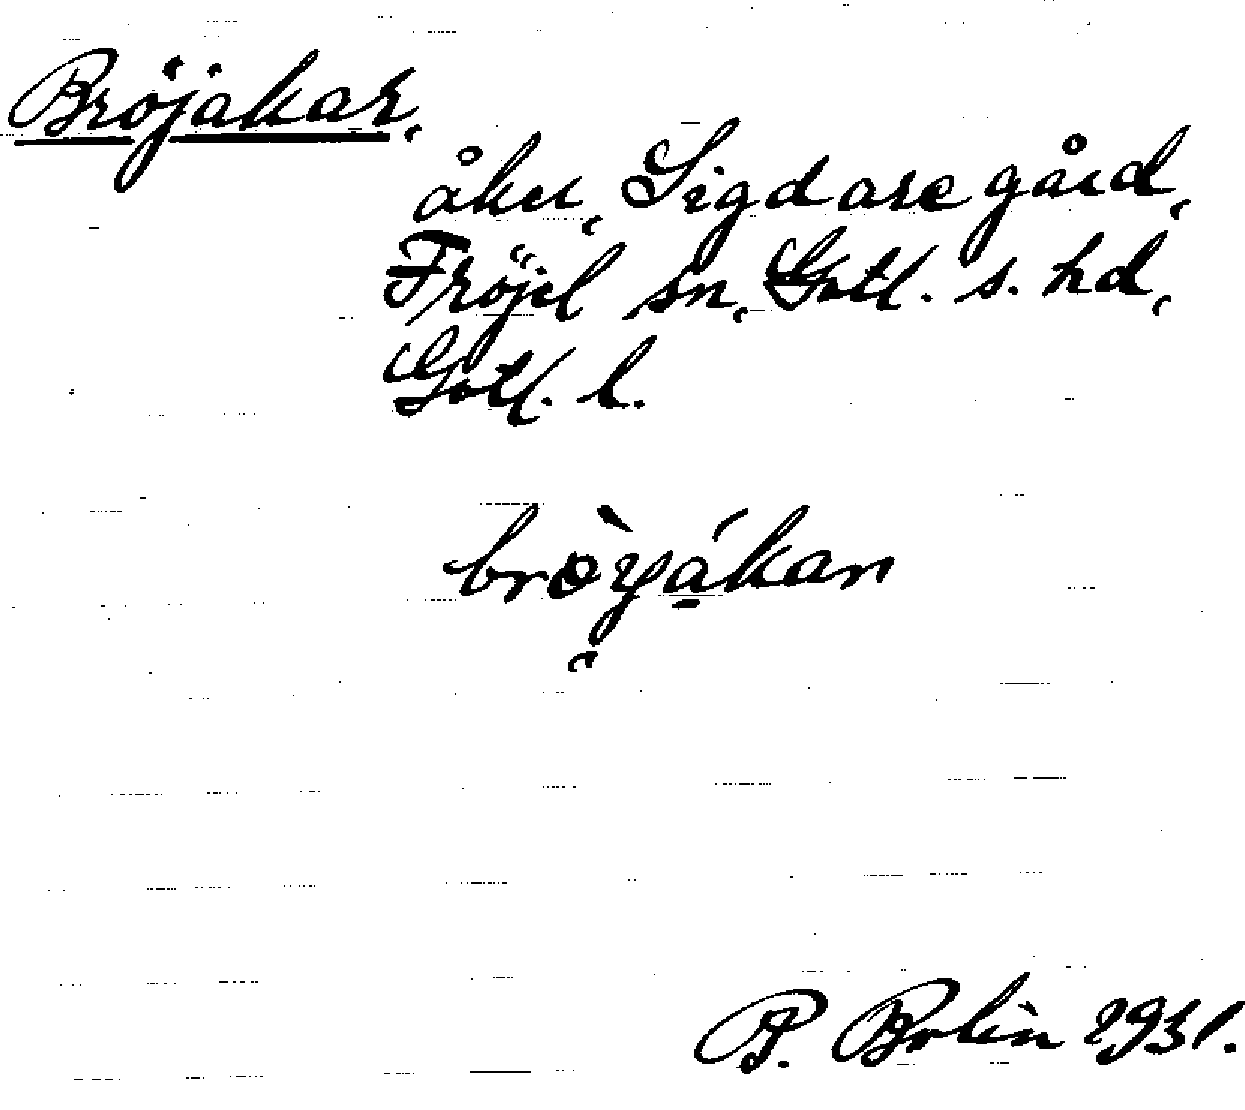 Bröjåkar,
åker, Sigdaregård,
Fröjel sn, Gotl. s. hd,
Gotl. l.
brö̀yákan
P. Bolin 1931.